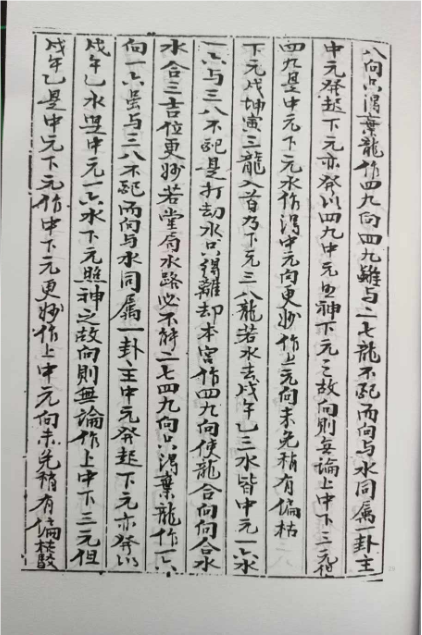 八向只得棄龍作四九向四九雖与二七龍不配而向与水同属一卦主
中元發起下元亦發以四九中元正神下元之故向則無論上中下三元但
四九是中元下元水作得中元向更妙作上元向未免稍有偏枯
下元戌坤寅三龍入首乃下元三八龍若水去戌午乙三水皆中元一六水
一六与三八不配是打劫水只得離却本宮作四九向使龍合向向合水
水合三吉位更妙若堂局水路必不符二七四九向只得棄龍作一六
向一六虽与三八不配而向与水同属一卦主中元發起下元亦發以
戌午乙水是中元一六水下元照神之故向則無論作上中下三元但
戌午乙是中元下元作中下元更妙作上中元向未免稍有偏枯